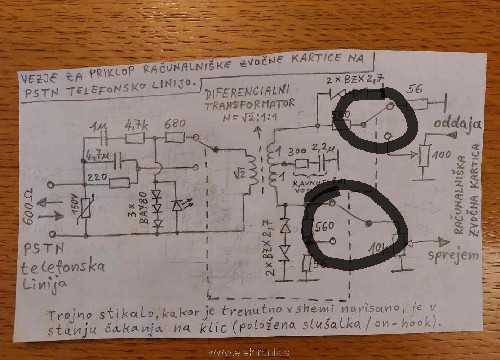 VEZJE ZA PRIKLOP RAČUNALNIŠKE ZVOČNE KARTICE NA
PSTN TELEFONSKO LINIJO.
DIFERENCIALNI
TRANSFORMATOR
N=√2:1:1
2×BZX2,7
56
1μ
4,7k
680
oddaja
4,7μ
100
220
√2
1
1
300
2,2μ
600Ω
150V
3×
BAY80
RAČUNALNIŠKA
ZVOČNA KARTICA
2×BZX2,7
560
10k
sprejem
PSTN
telefonska
linija
Trojno stikalo, kakor je trenutno v shemi narisano, je v
stanju čakanja na klic (položena slušalka/on-hook).